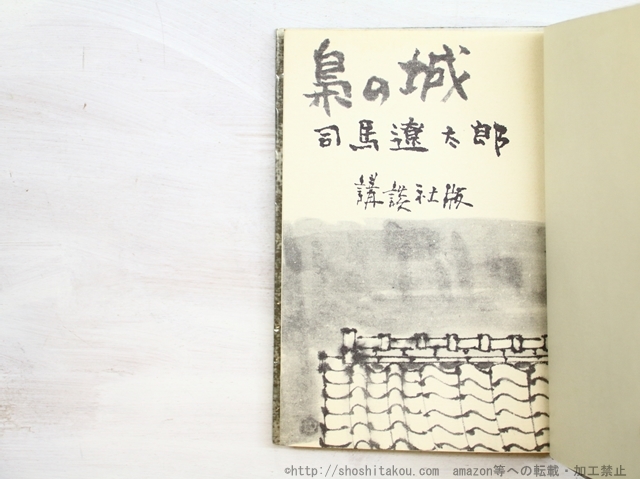 梟の城
司馬遼太郎
講談社版
©http://shoshitakou.com amazon等への転載・加工禁止